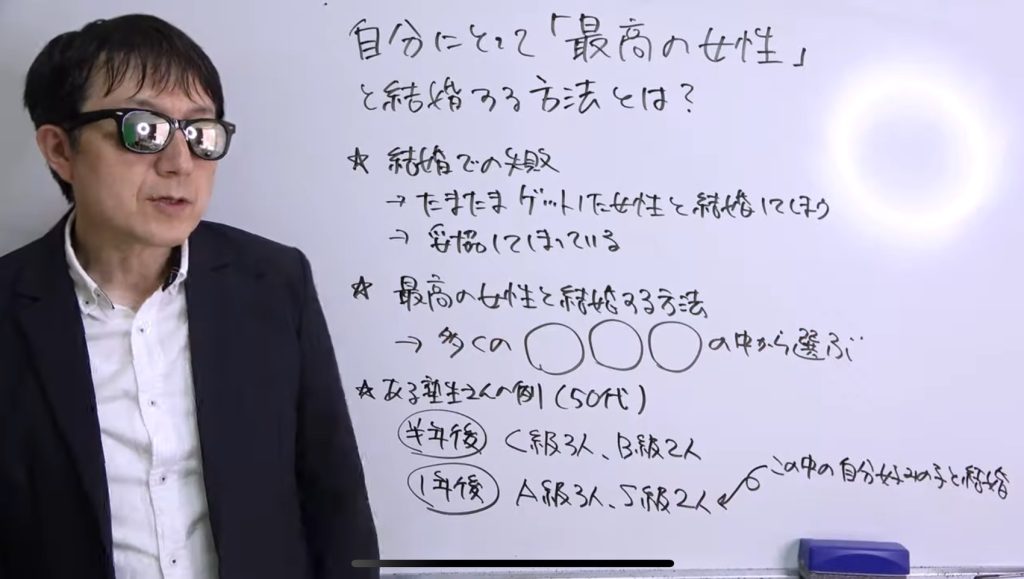 自分にとって「最高の女性」
と結婚する方法とは？
☆ 結婚での失敗
→ たまたま ゲットした女性と結婚してしまう
→ 妥協してしまっている
☆ 最高の女性と結婚する方法
→ 多くの〇〇〇の中から選ぶ
☆ ある塾生さんの例（50代）
半年後 C級3人、B級2人
1年後 A級3人、S級2人
この中の自分好みの子と結婚